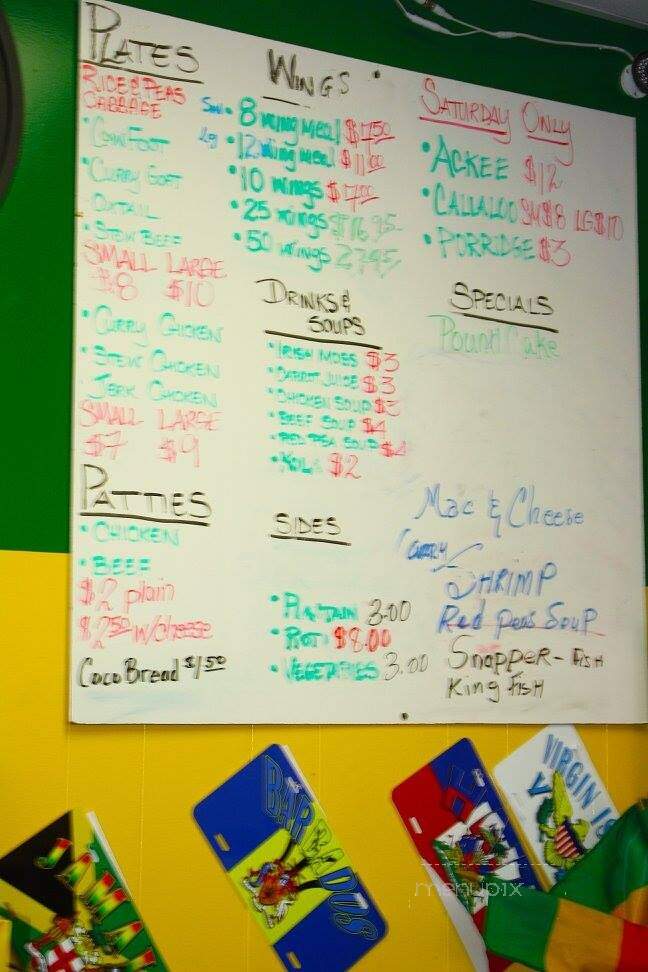 PLATES
RICE & PEAS
CABBAGE
• COWFOOT
• CURRY GOAT
• OXTAIL
• STEW BEEF
SMALL LARGE
$8 $10
• CURRY CHICKEN
• STEW CHICKEN
• JERK CHICKEN
SMALL LARGE
$7 $9
PATTIES
• CHICKEN
• BEEF
$2 plain
$2.50 w/cheese
Coco Bread $1.50
WINGS
Sm • 8 wing meal $7.50
Lg • 12 wing meal $11.00
• 10 wings $7.00
• 25 wings $16.95
• 50 wings 27.95
DRINKS &
SOUPS
• IRISH MOSS $3
• CARROT JUICE $3
• CHICKEN SOUP $3
• BEEF SOUP $4
• RED PEA SOUP $4
• $2
SIDES
• PLANTAIN 3.00
• ROTI $8.00
• VEGETABLES 3.00
SATURDAY ONLY
• ACKEE $12
• CALLALOO SM $8 LG $10
• PORRIDGE $3
SPECIALS
Pound Cake
Mac & Cheese
CURRY
SHRIMP
Red Peas Soup
Snapper - FISH
King FISH
JAMAI
BARBADOS
VIRGIN IS
menupix